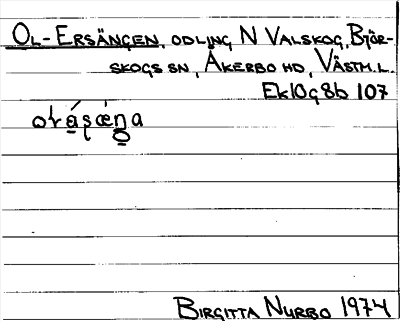 OL-ERSÄNGEN, ODLING N VALSKOG, BJÖR-
SKOGS SN, ÅKERBO HD, VÄSTM.L.
Ek10g8b 107
BIRGITTA NURBO 1974